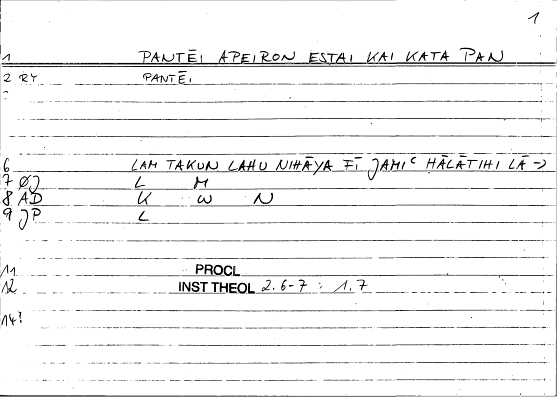 1
1 PANTĒI APEIRON ESTAI KAI KATA PAN
2 RY PANTĒI
6 LAM TAKUN LAHU NIHĀYA FĪ JAMIᶜ HĀLĀTIHI LĀ →
7 ØJ L M
8 AD K W N
9 JP L
11 PROCL
12 INST THEOL 2.6-7 : 1.7
14?